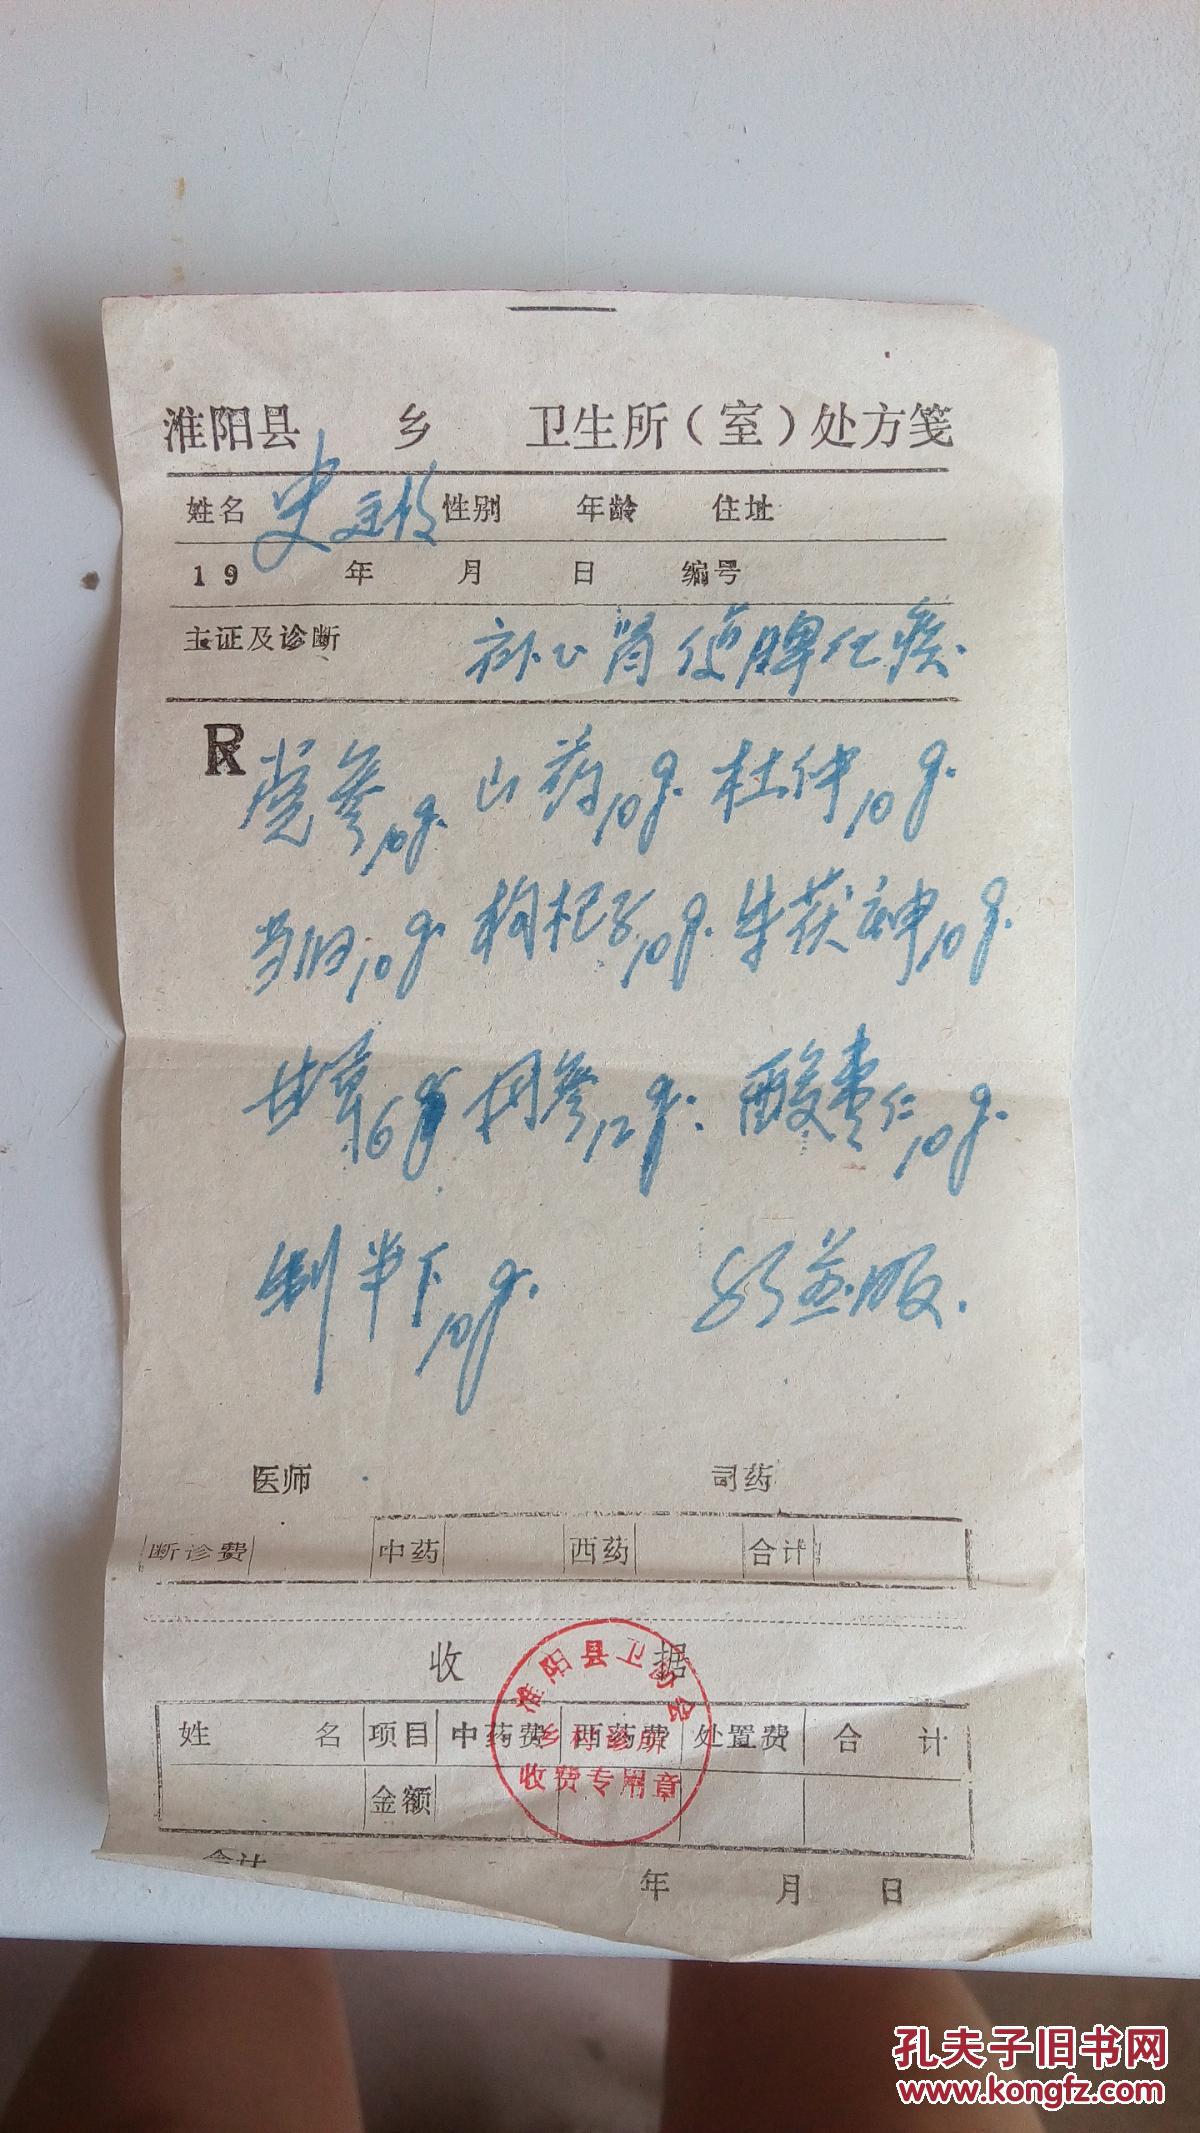 淮阳县 乡 卫生所（室）处方笺
姓名 史 性别 年龄 住址
19 年 月 日 编号
主证及诊断 补心肾健脾化痰.
R
党参10g. 山药10g. 杜仲10g.
当归10g. 枸杞子10g. 朱茯神10g.
甘草6g 丹参12g. 酸枣仁10g.
制半下10g. 服.
医师 司药
断诊费 中药 西药 合计
收 据
淮阳县卫
收费专用章
姓 名 项目 中药费 西药费 处置费 合 计
金额
合计
年 月 日
孔夫子旧书网
www.kongfz.com